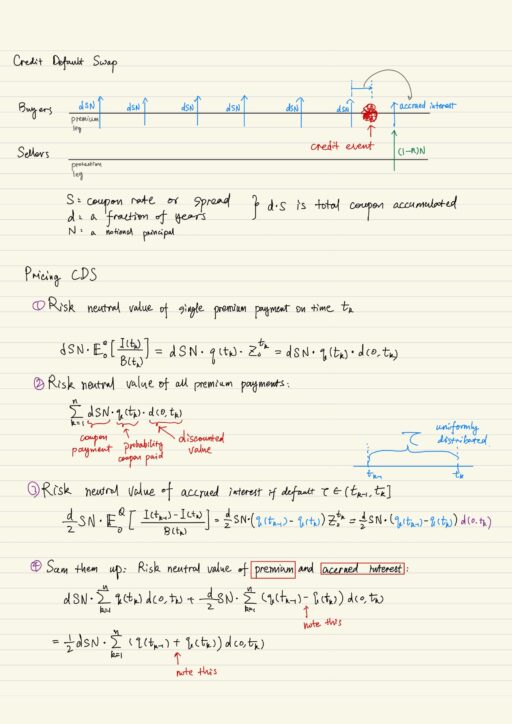 Credit Default Swap
dSN dSN dSN dSN dSN dSN
Buyers accrued interest
premium leg
credit event
(1-R)N
Sellers
protection leg
S = coupon rate or spread
d = a fraction of years } d·S is total coupon accumulated
N = a notional principal
Pricing CDS
① Risk neutral value of single premium payment on time t_k
dSN · E_0^Q [ I(t_k) / B(t_k) ] = dSN · q(t_k) · Z_0^{t_k} = dSN · q(t_k) · d(0, t_k)
② Risk neutral value of all premium payments:
∑_{k=1}^{n} dSN · q(t_k) · d(0, t_k)
coupon payment
probability coupon paid
discounted value
τ uniformly distributed
t_{k-1} t_k
③ Risk neutral value of accrued interest if default τ ∈ (t_{k-1}, t_k]
d/2 SN · E_0^Q [ (I(t_{k-1}) - I(t_k)) / B(t_k) ] = d/2 SN · (q(t_{k-1}) - q(t_k)) Z_0^{t_k} = d/2 SN · (q(t_{k-1}) - q(t_k)) d(0, t_k)
④ Sum them up: Risk neutral value of premium and accrued interest:
dSN · ∑_{k=1}^{n} q(t_k) d(0, t_k) + d/2 SN · ∑_{k=1}^{n} (q(t_{k-1}) - q(t_k)) d(0, t_k)
note this
= 1/2 dSN · ∑_{k=1}^{n} (q(t_{k-1}) + q(t_k)) d(0, t_k)
note this